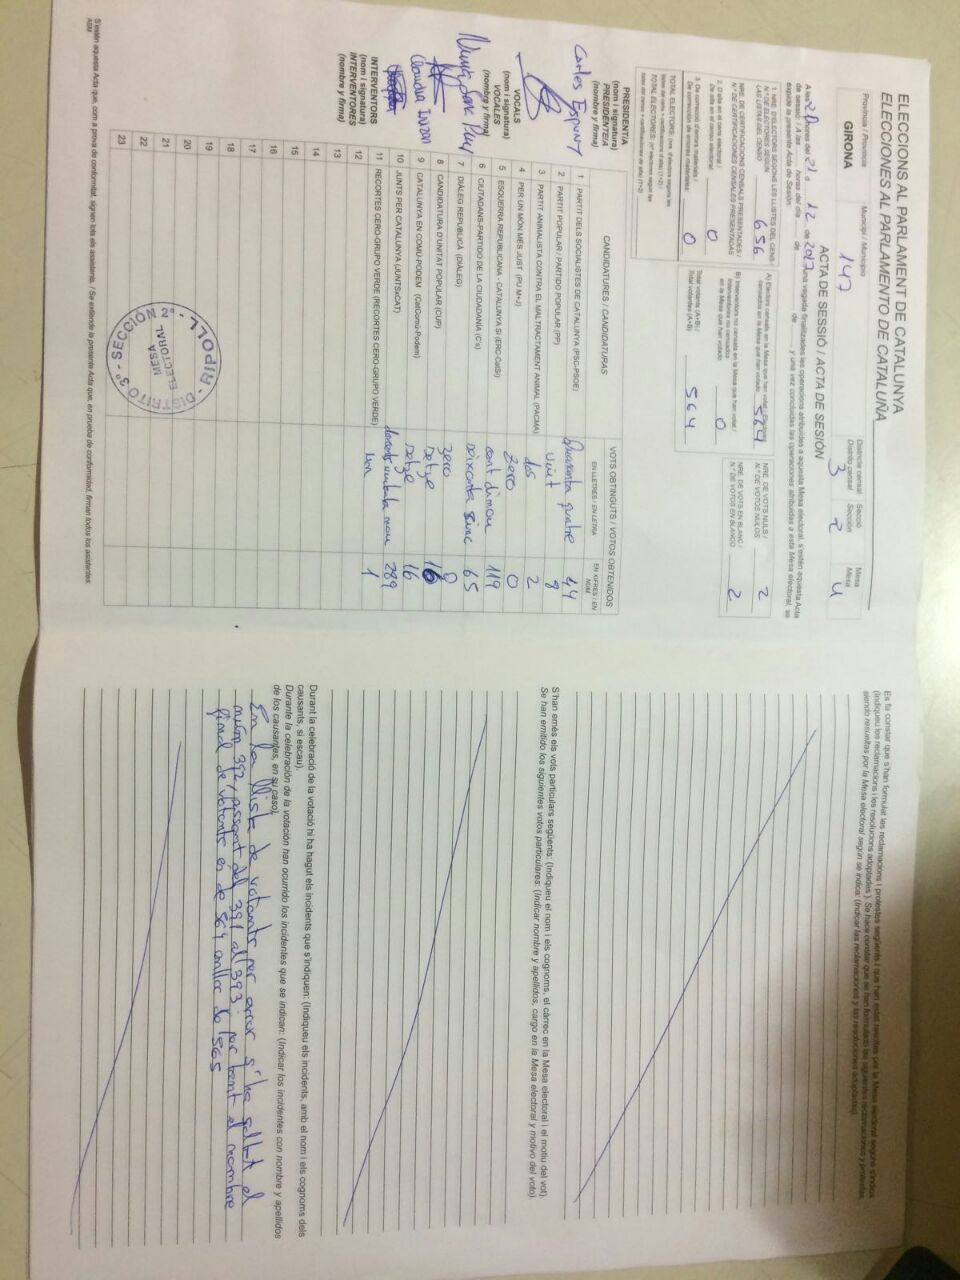 ELECCIONS AL PARLAMENT DE CATALUNYA
ELECCIONES AL PARLAMENTO DE CATALUÑA
Província / Provincia
GIRONA
Municipi / Municipio
147
Districte censal
Distrito censal
3
Secció
Sección
2
Mesa
Mesa
U
ACTA DE SESSIÓ / ACTA DE SESIÓN
A les 21 hores del 21 d 12 de 2017, una vegada finalitzades les operacions atribuïdes a aquesta Mesa electoral, s'estén aquesta Acta
de sessió / A las horas del día de de y una vez concluidas las operaciones atribuidas a esta Mesa electoral, se
expide la presente Acta de Sesión
1. NRE. D'ELECTORS SEGONS LES LLISTES DEL CENS /
N.º DE ELECTORES SEGÚN
LAS LISTAS DEL CENSO
656
NRE. DE CERTIFICACIONS CENSALS PRESENTADES /
N.º DE CERTIFICACIONES CENSALES PRESENTADAS
2. D'alta en el cens electoral /
De alta en el censo electoral
0
3. De correcció d'errors materials /
De corrección de errores materiales
0
A) Electors censats en la Mesa que han votat / Electores
censados en la Mesa que han votado
564
B) Interventors no censats en la Mesa que han votat /
Interventores no censados
en la Mesa que han votado
0
Total votants (A+B) /
Total votantes (A+B)
564
NRE. DE VOTS NULS /
N.º DE VOTOS NULOS
2
NRE. DE VOTS EN BLANC /
N.º DE VOTOS EN BLANCO
2
CANDIDATURES / CANDIDATURAS
VOTS OBTINGUTS / VOTOS OBTENIDOS
EN LLETRES / EN LETRA
EN XIFRES / EN NÚM.
1 PARTIT DELS SOCIALISTES DE CATALUNYA (PSC-PSOE) Quaranta quatre 44
2 PARTIT POPULAR / PARTIDO POPULAR (PP) vuit 8
3 PARTIT ANIMALISTA CONTRA EL MALTRACTAMENT ANIMAL (PACMA) dos 2
4 PER UN MÓN MÉS JUST (PUM+J) zero 0
5 ESQUERRA REPUBLICANA - CATALUNYA SÍ (ERC-CatSí) cent dinou 119
6 CIUTADANS-PARTIDO DE LA CIUDADANÍA (C's) seixanta cinc 65
7 DIÀLEG REPUBLICÀ (DIÀLEG) zero 0
8 CANDIDATURA D'UNITAT POPULAR (CUP) setze 16
9 CATALUNYA EN COMÚ-PODEM (CatComú-Podem) setze 16
10 JUNTS PER CATALUNYA (JUNTSxCAT) 289
11 RECORTES CERO-GRUPO VERDE (RECORTES CERO-GRUPO VERDE) un 1
12
13
14
15
16
17
18
19
20
21
22
23
PRESIDENT/A
(nom i signatura)
PRESIDENTE/A
(nombre y firma)
Carles Espuny
VOCALS
(nom i signatura)
VOCALES
(nombre y firma)
INTERVENTORS
(nom i signatura)
INTERVENTORES
(nombre y firma)
RIPOLL - DISTRITO 3º - SECCIÓN 2ª
MESA
ELECTORAL
S'estén aquesta Acta que, com a prova de conformitat, signen tots els assistents. / Se extiende la presente Acta que, en prueba de conformidad, firman todos los asistentes.
Es fa constar que s'han formulat les reclamacions i protestes següents i que han estat resoltes per la Mesa electoral segons s'indica
(Indiqueu les reclamacions i les resolucions adoptades). Se hace constar que se han formulado las siguientes reclamaciones y protestas
siendo resueltas por la Mesa electoral según se indica: (Indicar las reclamaciones y las resoluciones adoptadas)
S'han emès els vots particulars següents: (Indiqueu el nom i els cognoms, el càrrec en la Mesa electoral i el motiu del vot).
Se han emitido los siguientes votos particulares: (Indicar nombre y apellidos, cargo en la Mesa electoral y motivo del voto).
Durant la celebració de la votació hi ha hagut els incidents que s'indiquen: (Indiqueu els incidents, amb el nom i els cognoms dels
causants, si escau).
Durante la celebración de la votación han ocurrido los incidentes que se indican: (Indicar los incidentes con nombre y apellidos
de los causantes, en su caso).
En la llista de votants per error s'ha saltat el
núm 392, passant del 391 al 393, per tant el nombre
final de votants és de 564 enlloc de 565